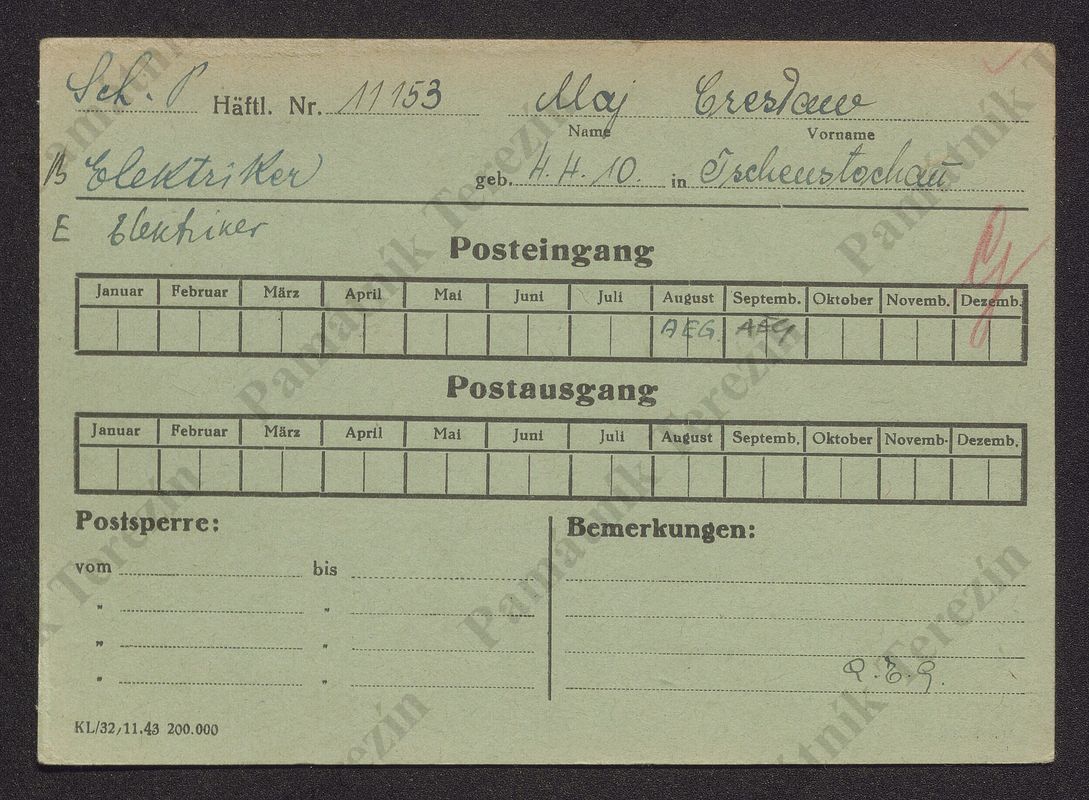 Sch. P Häftl. Nr. 11153 Maj Czesław
Name Vorname
B Elektriker geb. 4. 4. 10. in Tschenstochau
E Elektriker
Posteingang
Januar Februar März April Mai Juni Juli August Septemb. Oktober Novemb. Dezemb.
AEG. AEG
Postausgang
Januar Februar März April Mai Juni Juli August Septemb. Oktober Novemb. Dezemb.
Postsperre: Bemerkungen:
vom bis
" "
" "
" "
KL/32, 11.43 200.000
Památník Terezín